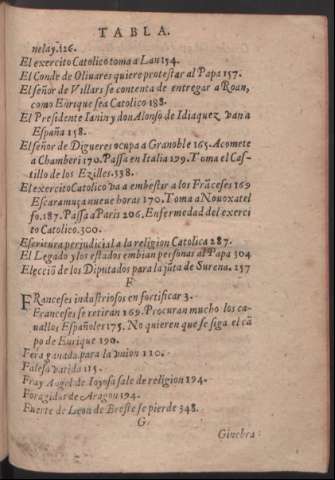 TABLA.
nelay. 126.
El exercito Catolico toma a Lan 154.
El Conde de Oliuares quiere protestar al Papa 157.
El señor de Villars se contenta de entregar a Roan,
como Enrique sea Catolico 188.
El Presidente Ianin y don Alonso de Idiaquez van a
España 158.
El señor de Digueres ocupa a Granoble 165. Acomete
a Chamberi 170. Passa en Italia 299. Toma el Cas-
tillo de los Ezilles. 338.
El exercito Catolico va a embestir a los Frãceses 169
Escaramuça nueue horas 170. Toma a Nouoxatel
fo. 187. Passa a Paris 206. Enfermedad del exerci
to Catolico. 300.
Escritura perjudicial a la religion Catolica 287.
El Legado y los estados embian personas al Papa 304
Elecciõ de los Diputados para la jũta de Surena. 357
F
FRanceses industriosos en fortificar 3.
Franceses se retiran 169. Procuran mucho los ca-
uallos Españoles 175. No quieren que se siga el cã
po de Enrique 190.
Fera ganada para la vnion 110.
Falesa batida 115.
Fray Angel de Ioyosa sale de religion 194.
Foragidos de Aragon 194.
Fuerte de Leon de Breste se pierde 348.
G.
Ginebra